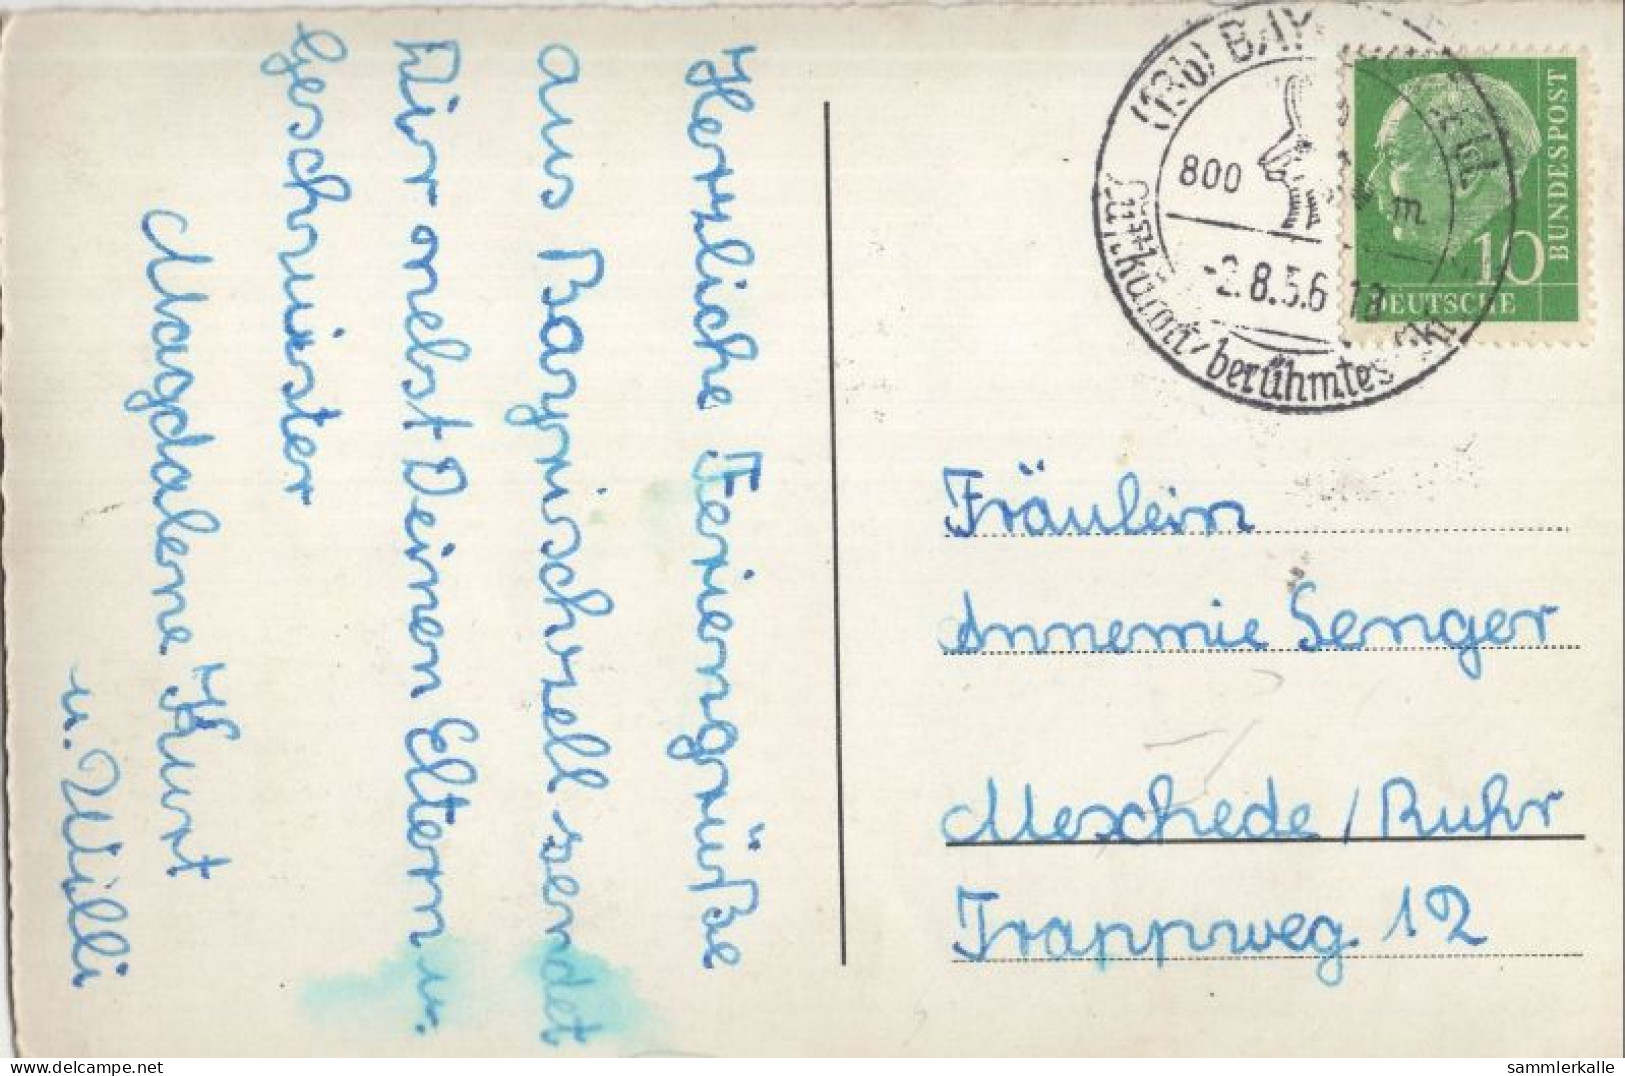 Herzliche Feriengrüße
aus Bayrischzell sendet
Dir nebst Deinen Eltern u.
Geschwister
Magdalene Kurt
u. Willi
(13b) BAY
800
m
-2.8.56 18
berühmtes
10
DEUTSCHE
BUNDESPOST
Fräulein
Annemie Senger
Meschede / Ruhr
Trappweg. 12
delcampe.net
sammlerkalle